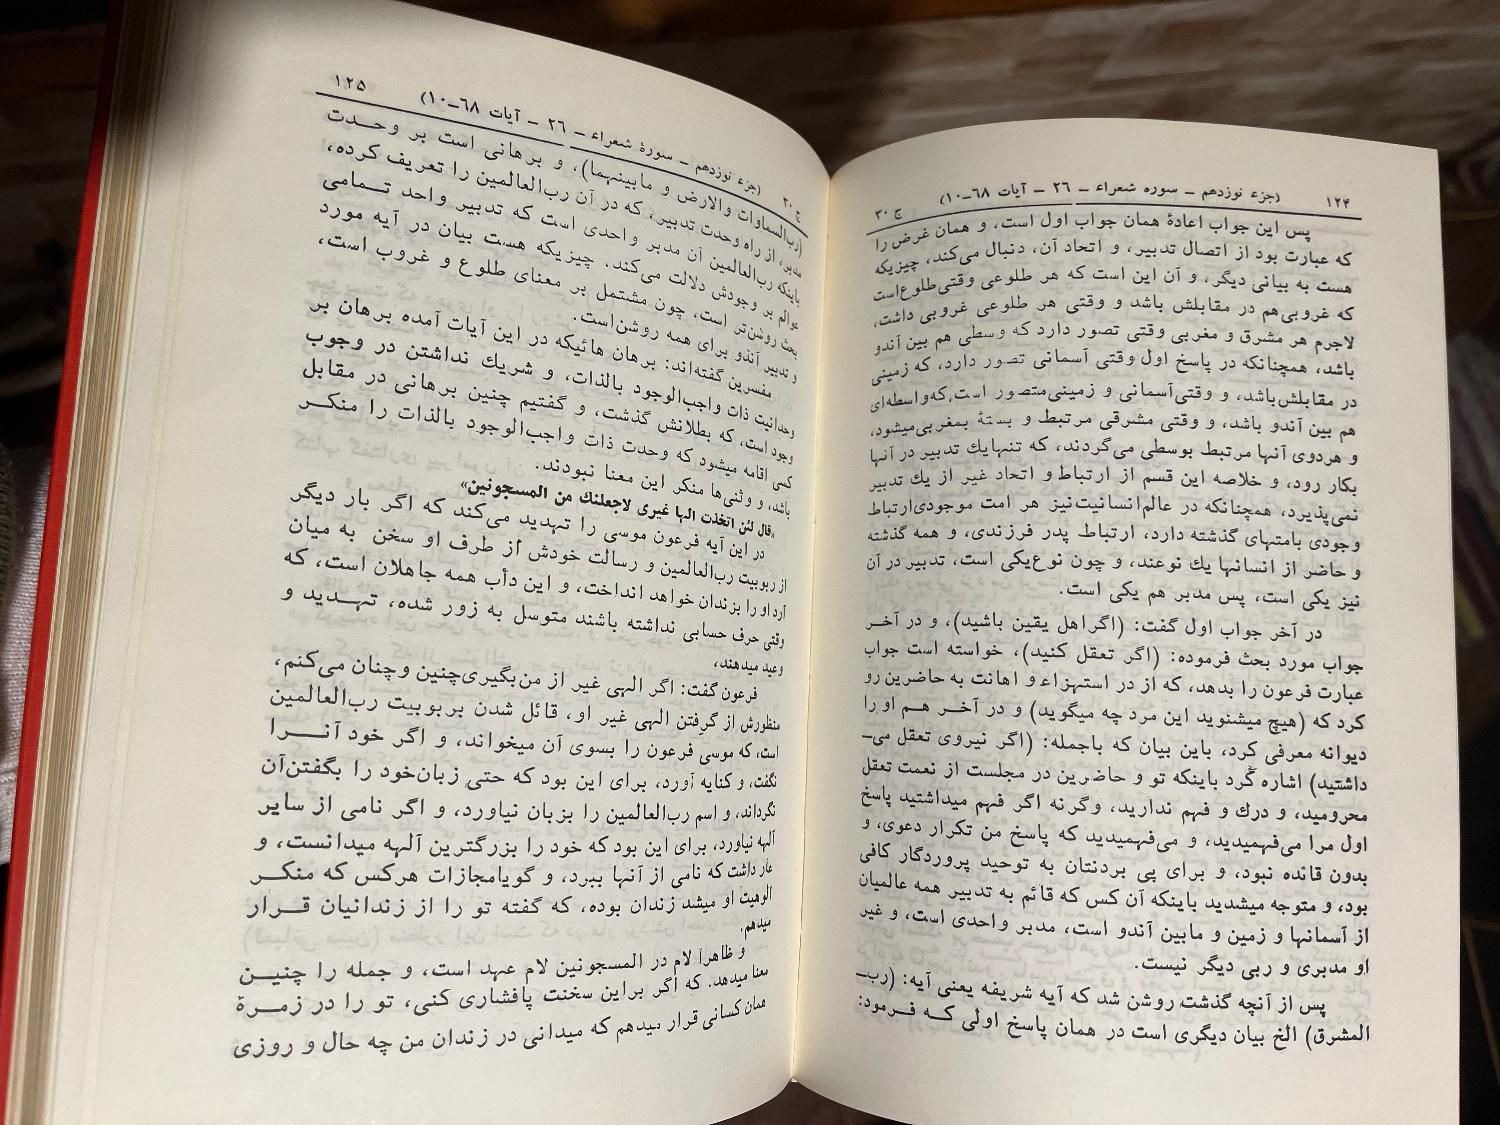 ۱۲۴ (جزء نوزدهم ـ سوره شعراء ـ ۲۶ ـ آیات ۶۸ـ۱۰) ج ۳۰
پس این جواب اعادهٔ همان جواب اول است، و همان غرض را
که عبارت بود از اتصال تدبیر، و اتحاد آن، دنبال می‌کند، چیزیکه
هست به بیانی دیگر، و آن این است که هر طلوعی وقتی طلوع است
که غروبی هم در مقابلش باشد و وقتی هر طلوعی غروبی داشت،
لاجرم هر مشرق و مغربی وقتی تصور دارد که وسطی هم بین آندو
باشد، همچنانکه در پاسخ اول وقتی آسمانی تصور دارد، که زمینی
در مقابلش باشد، و وقتی آسمانی و زمینی متصور است، که واسطه‌ای
هم بین آندو باشد، و وقتی مشرقی مرتبط و بستهٔ بمغربی میشود،
و هردوی آنها مرتبط بوسطی می‌گردند، که تنها یك تدبیر در آنها
بکار رود، و خلاصه این قسم از ارتباط و اتحاد غیر از یك تدبیر
نمی‌پذیرد، همچنانکه در عالم انسانیت نیز هر امت موجودی ارتباط
وجودی بامتهای گذشته دارد، ارتباط پدر فرزندی، و همه گذشته
و حاضر از انسانها یك نوعند، و چون نوع یکی است، تدبیر در آن
نیز یکی است، پس مدبر هم یکی است.
در آخر جواب اول گفت: (اگر اهل یقین باشید)، و در آخر
جواب مورد بحث فرموده: (اگر تعقل کنید)، خواسته است جواب
عبارت فرعون را بدهد، که از در استهزاء و اهانت به حاضرین رو
کرد که (هیچ میشنوید این مرد چه میگوید) و در آخر هم او را
دیوانه معرفی کرد، باین بیان که باجمله: (اگر نیروی تعقل می‌ـ
داشتید) اشاره گرد باینکه تو و حاضرین در مجلست از نعمت تعقل
محرومید، و درك و فهم ندارید، وگرنه اگر فهم میداشتید پاسخ
اول مرا می‌فهمیدید، و می‌فهمیدید که پاسخ من تکرار دعوی، و
بدون قائده نبود، و برای پی بردنتان به توحید پروردگار کافی
بود، و متوجه میشدید باینکه آن کس که قائم به تدبیر همه عالمیان
از آسمانها و زمین و مابین آندو است، مدبر واحدی است، و غیر
او مدبری و ربی دیگر نیست.
پس از آنچه گذشت روشن شد که آیه شریفه یعنی آیه: (رب‌ـ
المشرق) الخ بیان دیگری است در همان پاسخ اولی که فرمود:
ج ۳۰ (جزء نوزدهم ـ سورهٔ شعراء ـ ۲۶ ـ آیات ۶۸ـ۱۰) ۱۲۵
(رب‌السماوات والارض و مابینهما)، و برهانی است بر وحدت
مدبر، از راه وحدت تدبیر، که در آن رب‌العالمین را تعریف کرده،
باینکه رب‌العالمین آن مدبر واحدی است که تدبیر واحد تمامی
عوالم بر وجودش دلالت می‌کند، چیزیکه هست بیان در آیه مورد
بحث روشن‌تر است، چون مشتمل بر معنای طلوع و غروب است،
و تدبیر آندو برای همه روشن‌است.
مفسرین گفته‌اند: برهان هائیکه در این آیات آمده برهان بر
وحدانیت ذات واجب‌الوجود بالذات، و شریك نداشتن در وجوب
وجود است، که بطلانش گذشت، و گفتیم چنین برهانی در مقابل
کسی اقامه میشود که وحدت ذات واجب‌الوجود بالذات را منکر
باشد، و وثنی‌ها منکر این معنا نبودند.
«قال لئن اتخذت الها غیری لاجعلنك من المسجونین»
در این آیه فرعون موسی را تهدید می‌کند که اگر بار دیگر
از ربوبیت رب‌العالمین و رسالت خودش از طرف او سخن به میان
آرد او را بزندان خواهد انداخت، و این دأب همه جاهلان است، که
وقتی حرف حسابی نداشته باشند متوسل به زور شده، تهدید و
وعید میدهند،
فرعون گفت: اگر الهی غیر از من بگیری چنین و چنان می‌کنم،
منظورش از گرفتن الهی غیر او، قائل شدن بربوبیت رب‌العالمین
است، که موسی فرعون را بسوی آن میخواند، و اگر خود آنرا
نگفت، و کنایه آورد، برای این بود که حتی زبان خود را بگفتن آن
نگرداند، و اسم رب‌العالمین را بزبان نیاورد، و اگر نامی از سایر
آلهه نیاورد، برای این بود که خود را بزرگترین آلهه میدانست، و
عار داشت که نامی از آنها ببرد، و گویا مجازات هرکس که منکر
الوهیت او میشد زندان بوده، که گفته تو را از زندانیان قرار
میدهم.
و ظاهراً لام در المسجونین لام عهد است، و جمله را چنین
معنا میدهد. که اگر براین سخنت پافشاری کنی، تو را در زمرهٔ
همان کسانی قرار میدهم که میدانی در زندان من چه حال و روزی